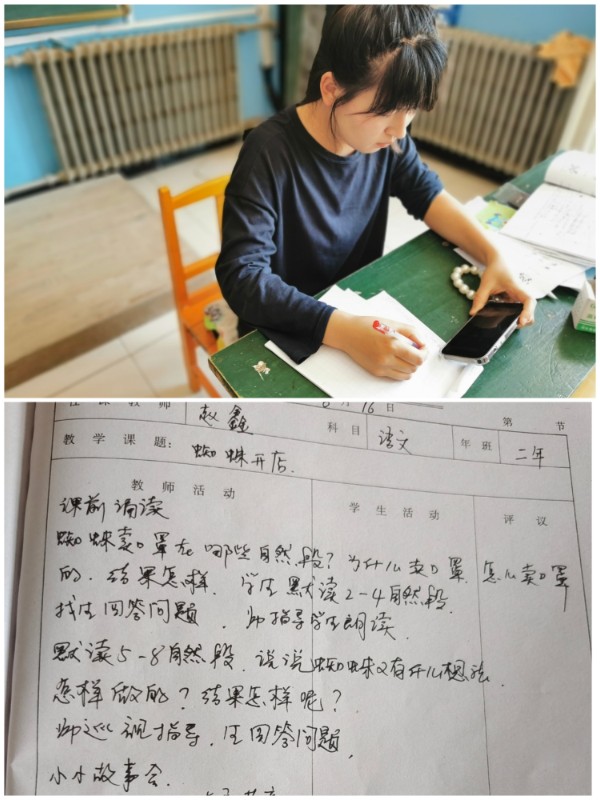 任课教师 赵鑫 6月16日 第 节
教学课题: 蜘蛛开店. 科目 语文 年班 二年
教师活动 学生活动 评议
课前诵读
蜘蛛卖口罩在哪些自然段?为什么卖口罩 怎么卖口罩
的. 结果怎样. 学生默读2-4自然段.
找生回答问题. 师指导学生朗读.
默读5-8自然段. 说说蜘蛛又有什么想法
怎样做的?结果怎样呢?
师巡视指导, 生回答问题.
小小故事会.